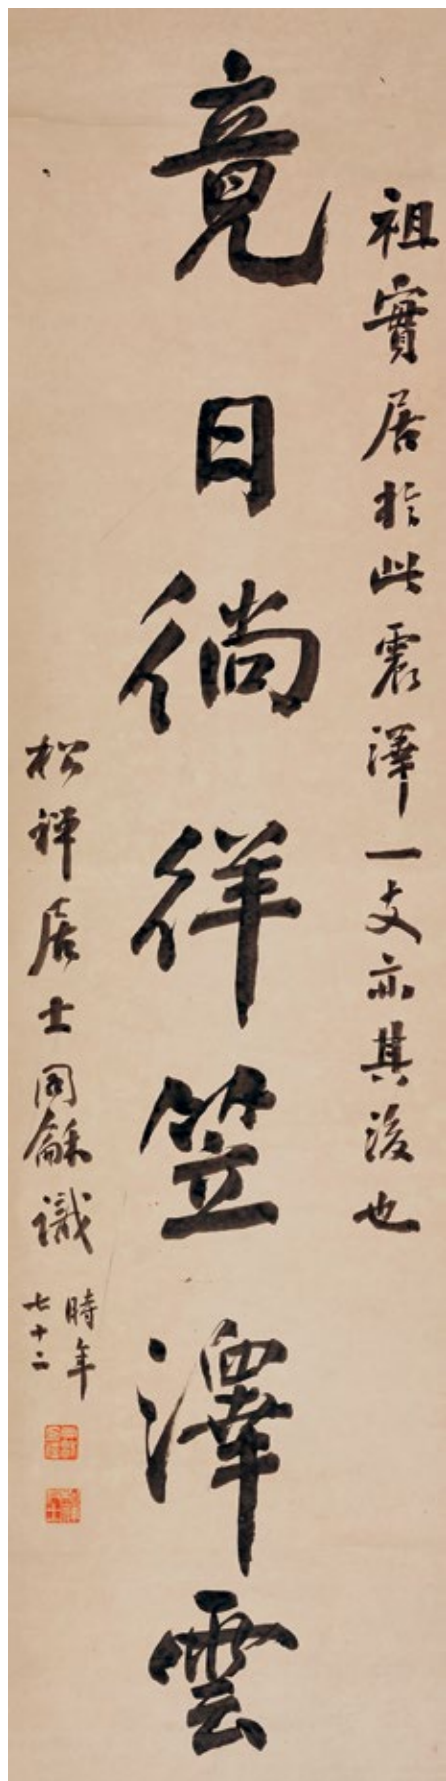 祖實居於此震澤一支亦其後也
竟日徜徉笠澤雲
松禪居士同龢識
時年
七十二